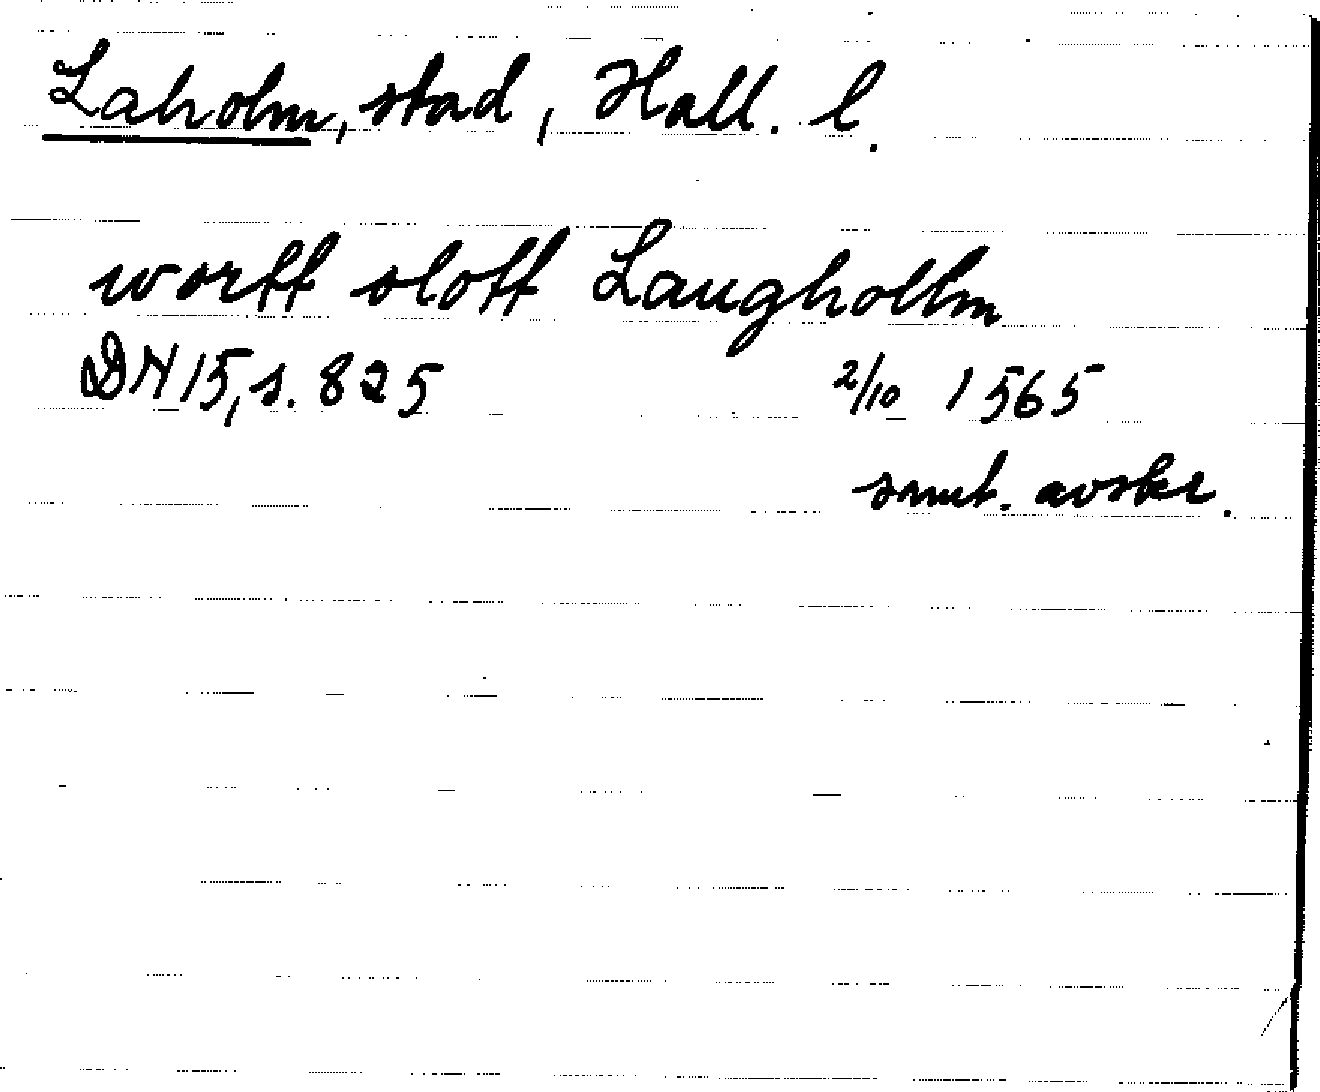 Laholm, stad, Hall. l.
wortt slott Laughollm
DN 15, s. 825 2/10 1565
samt. avskr.